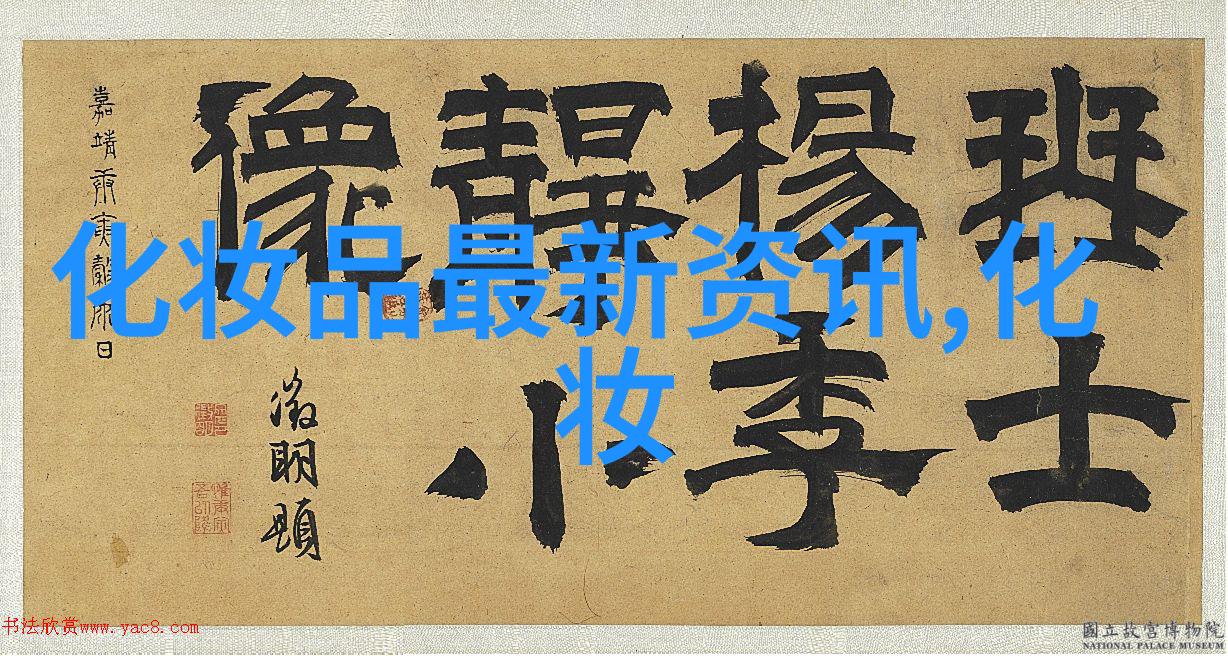 化妆品最新资讯,化
妆
士
楊季
小
像
嘉靖庚寅
日
徵明題
书法欣赏www.yac8.com
國立故宮博物院
NATIONAL PALACE MUSEUM